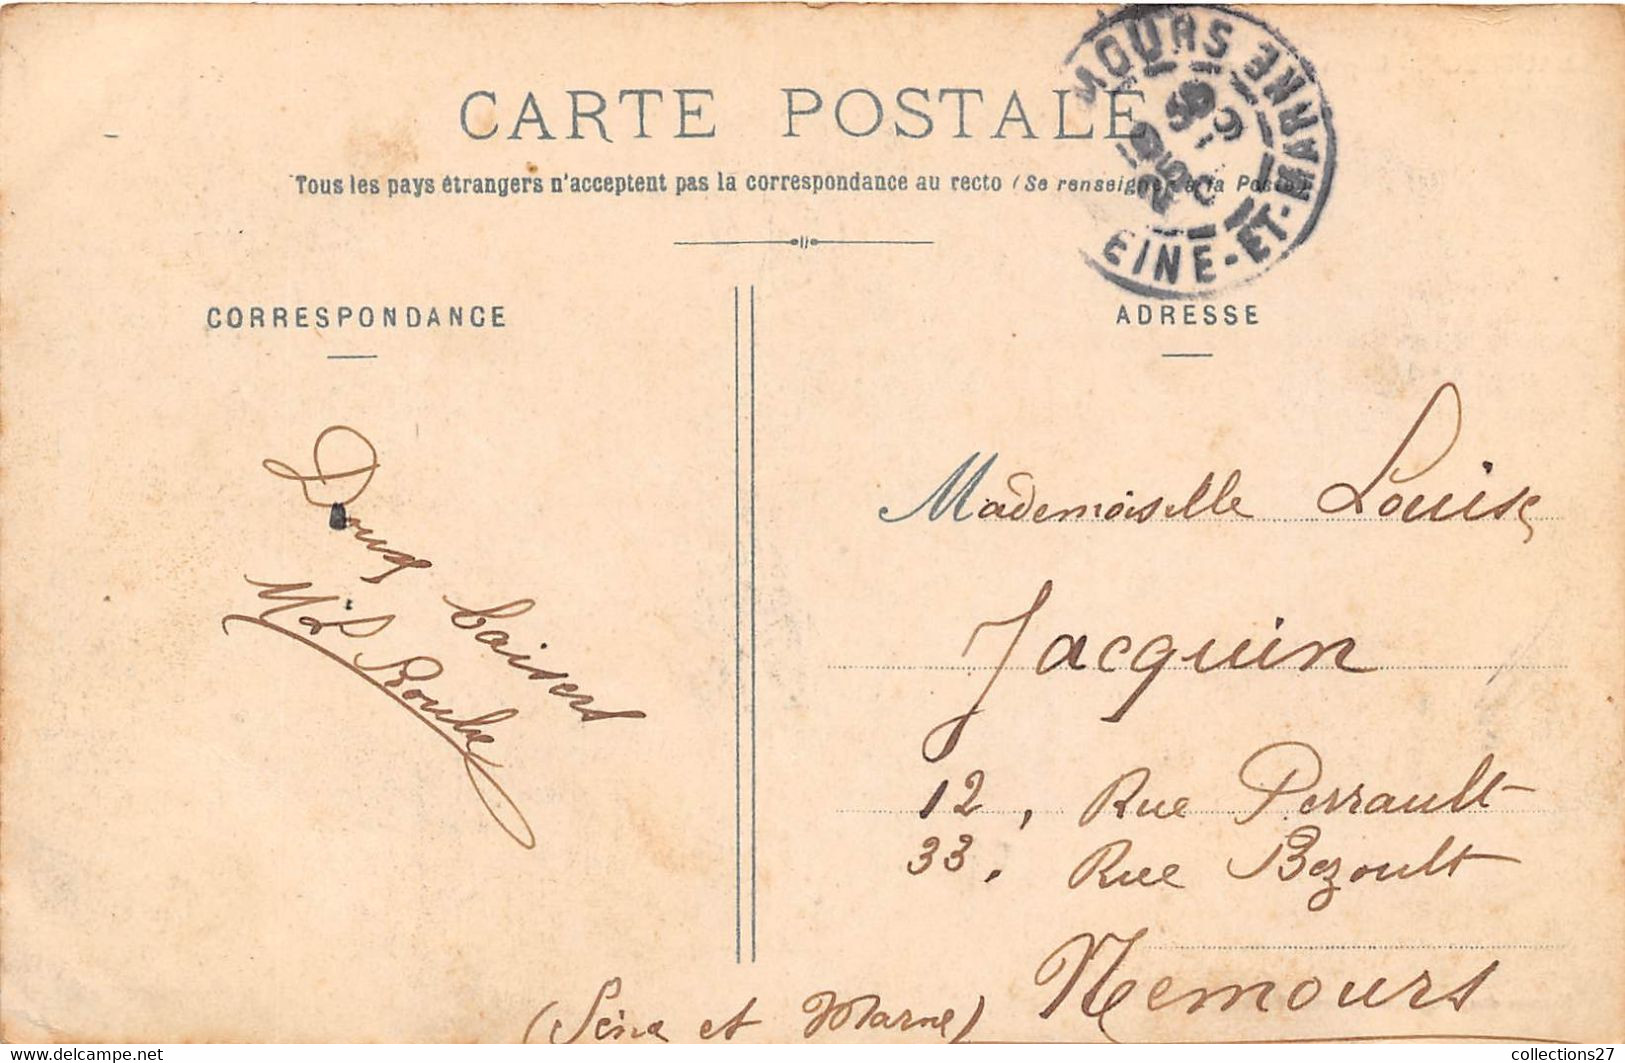 CARTE POSTALE
Tous les pays étrangers n'acceptent pas la correspondance au recto (Se renseigner à la Poste)
MOURS
EINE-ET-MARNE
CORRESPONDANCE
ADRESSE
Doux baisers
Mademoiselle Louise
Jacquin
12, Rue Perrault
33. Rue Bezoult
Nemours
(Seine et Marne)
collections27